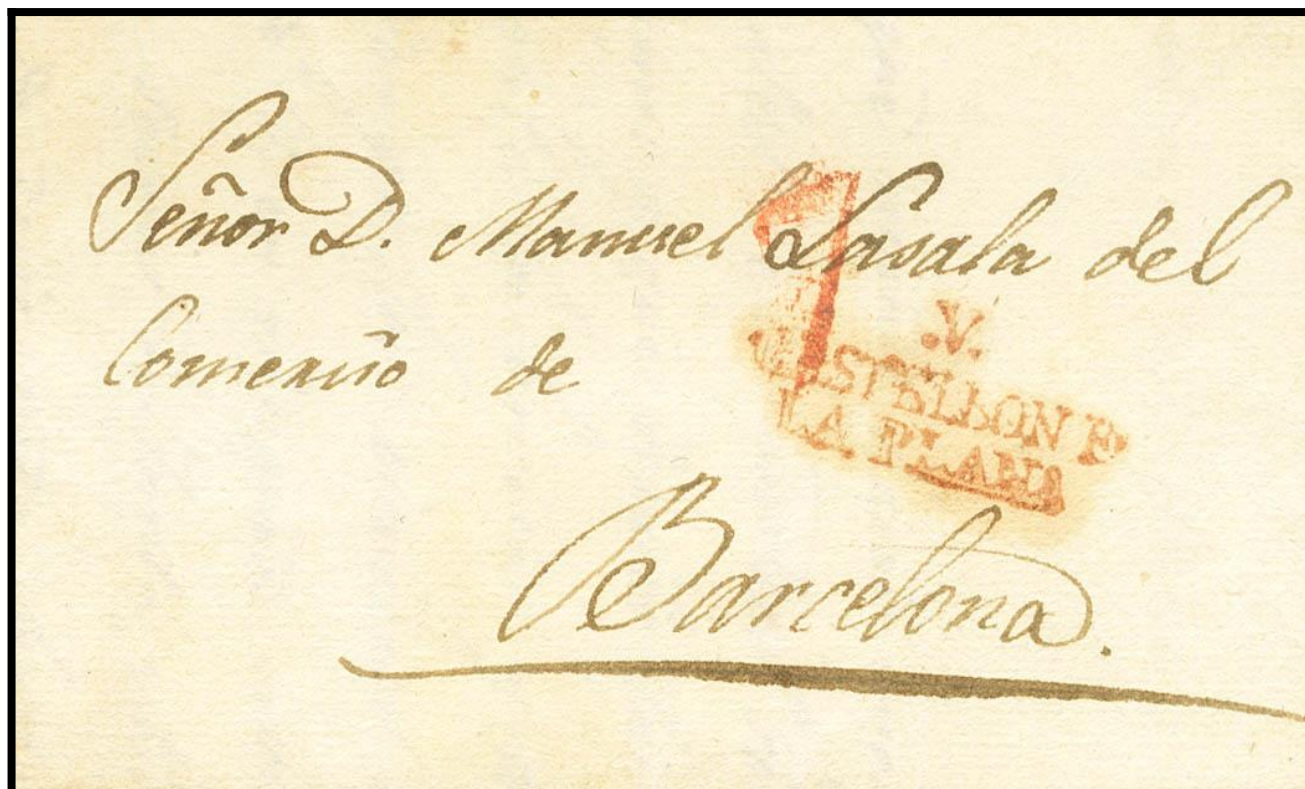 Señor D. Manuel Lasala del
Comercio de
.V.
CASTELLON
LA PLANA
Barcelona.